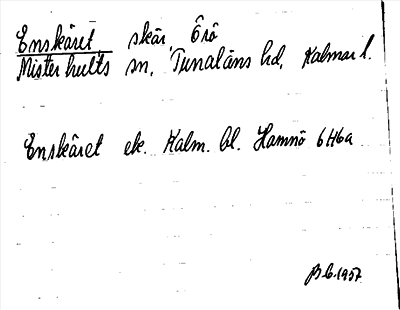 Enskäret skär, Örö
Misterhults sn, Tunaläns hd, Kalmar l.
Enskäret ek. Kalm. bl. Hamnö 6H6a
1957